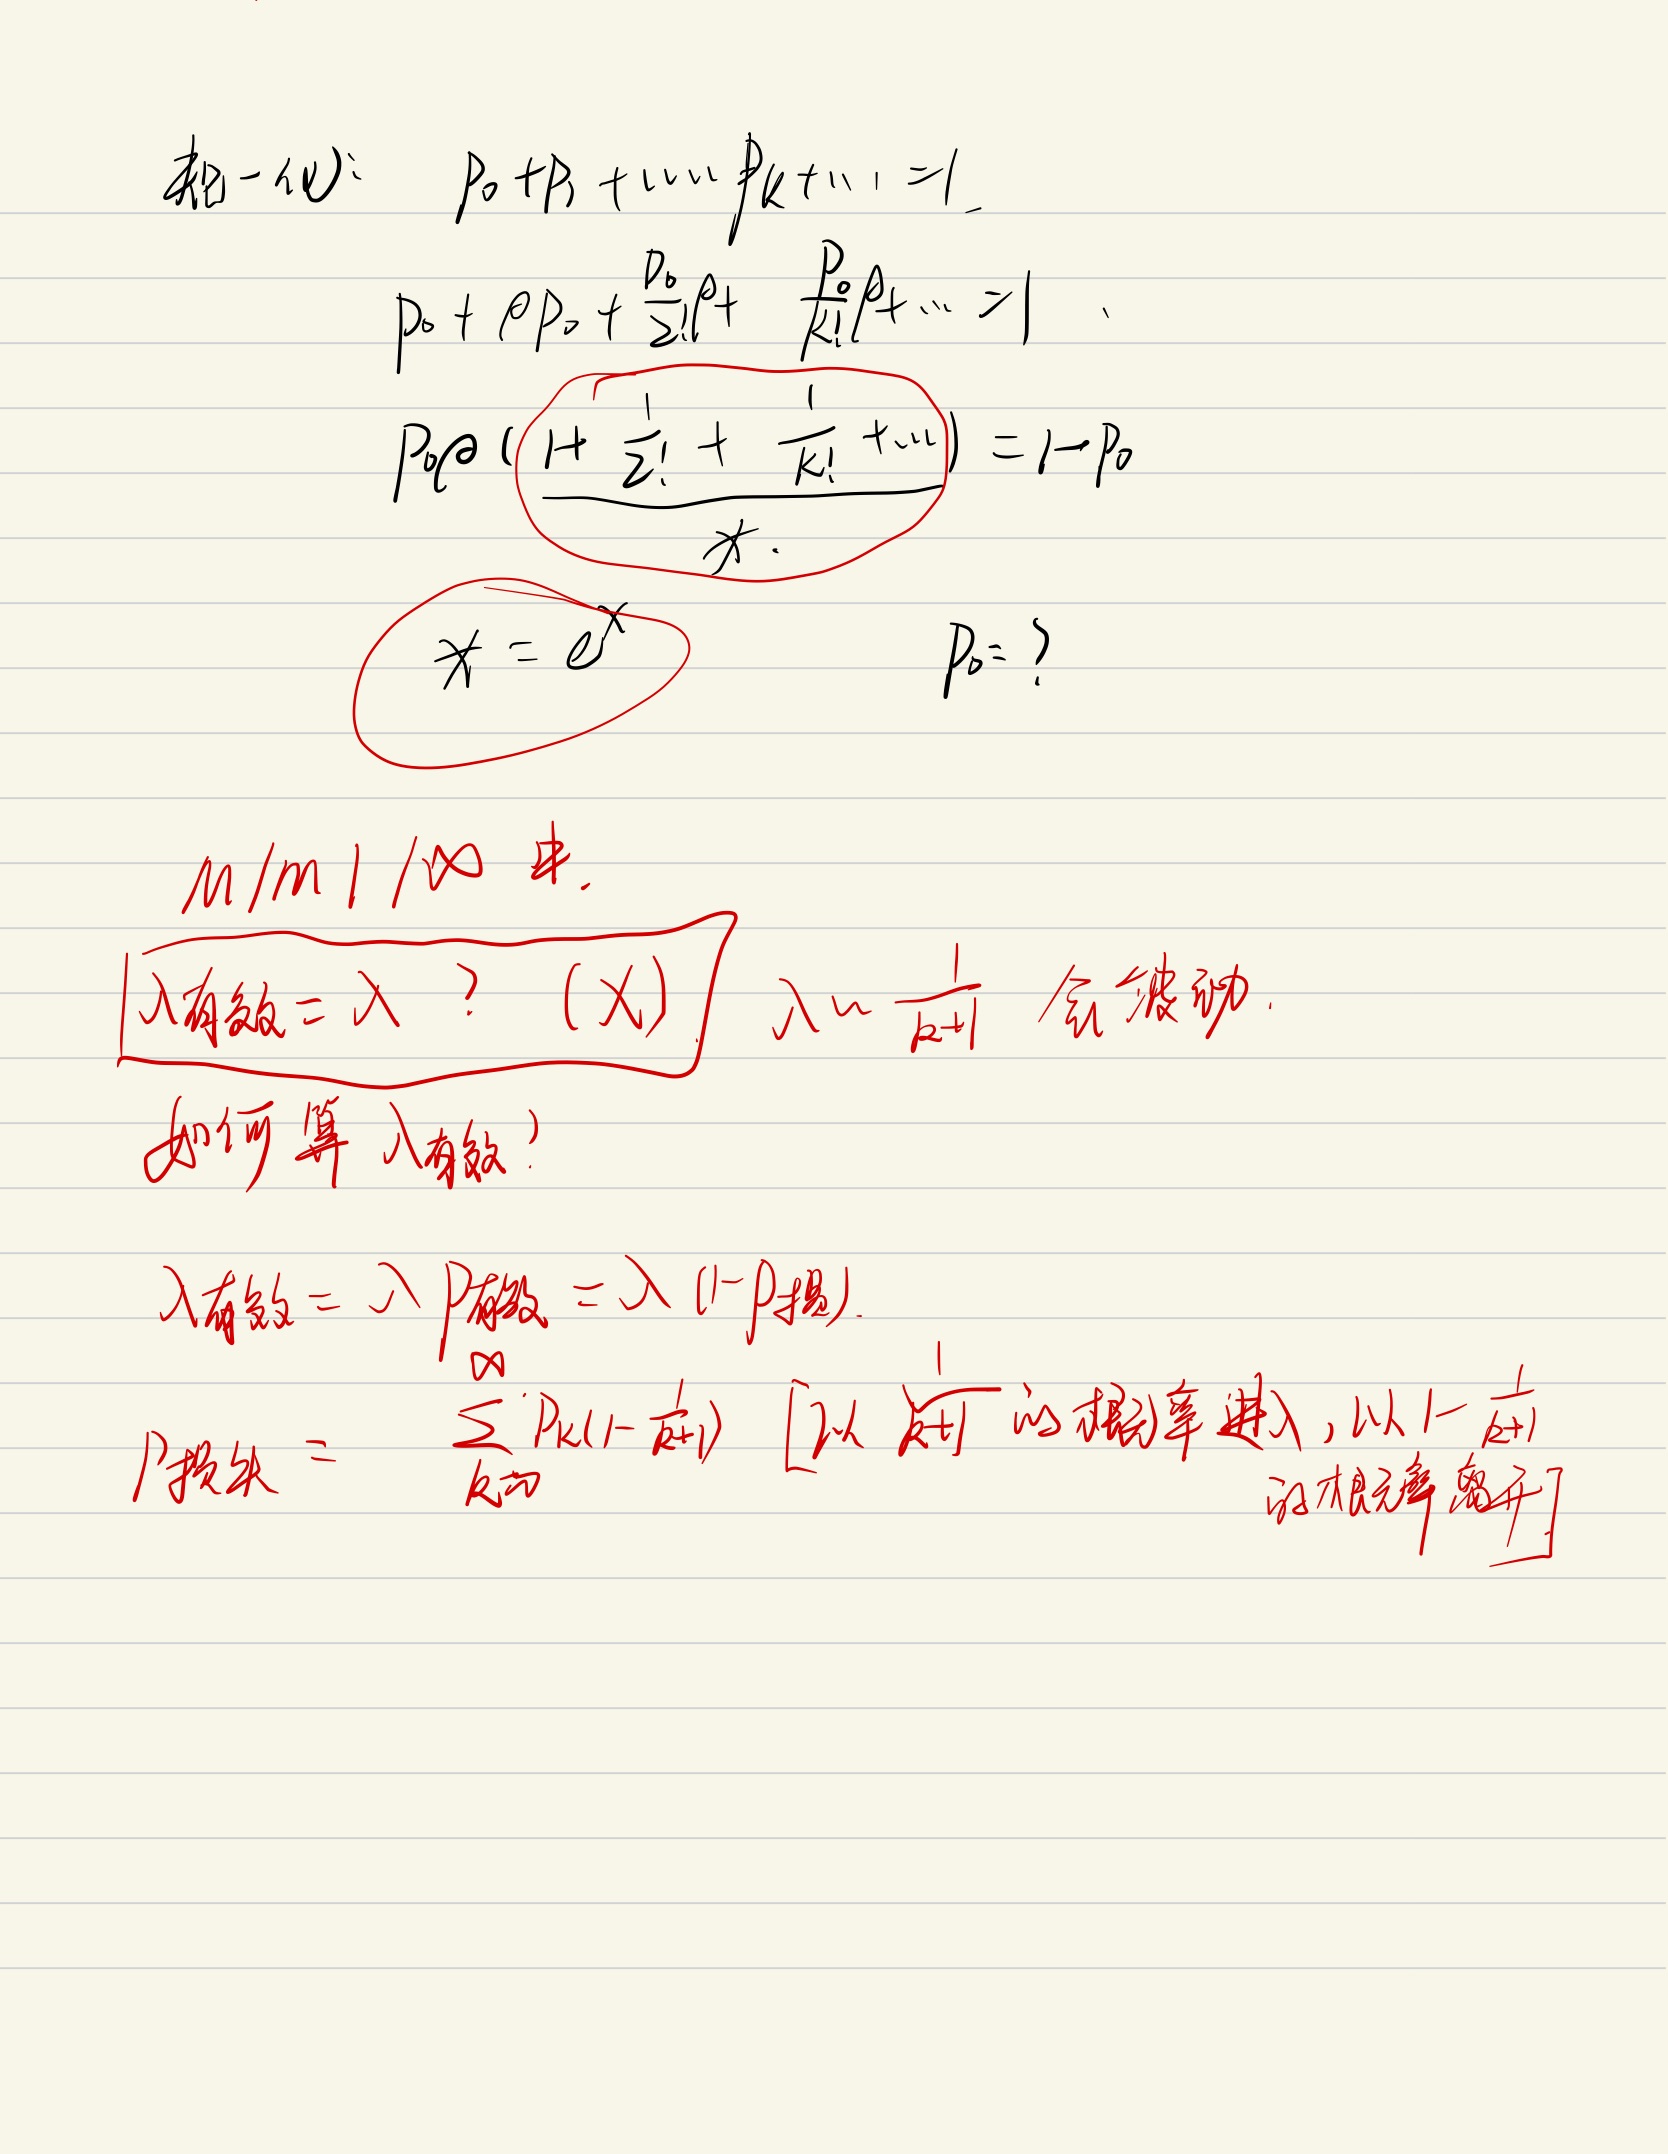 相一化: P₀+P₁+……Pk+…=1.
P₀+ρP₀+P₀/2!ρ+ P₀/k!ρ+…=1.
P₀ρ(1+1/2!+1/k!+…)=1-P₀
*.
*=eˣ P₀=?
M/M/1/∞ 中.
λ有效=λ? (X) λ~1/k+1 会波动.
如何算λ有效?
λ有效=λP有效=λ(1-P损).
P损失=∑k=0∞ Pk(1-1/k+1) [以1/k+1的概率进入,以1-1/k+1
的概率离开]